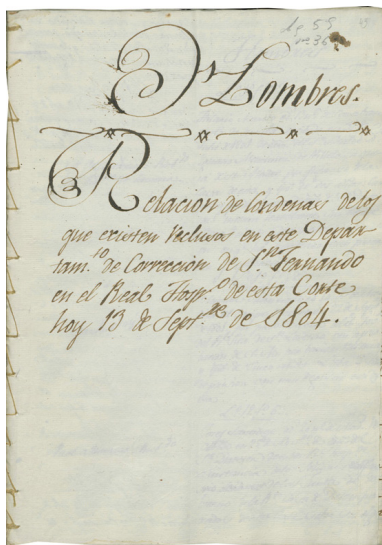 lg 55 19
nº 36
Hombres.
Relacion de Condenas de los
que existen reclusos en este Depar-
tam.to de Correccion de S.n Fernando
en el Real Hosp.o de esta Corte
hoy 13 de Sept.re de 1804.